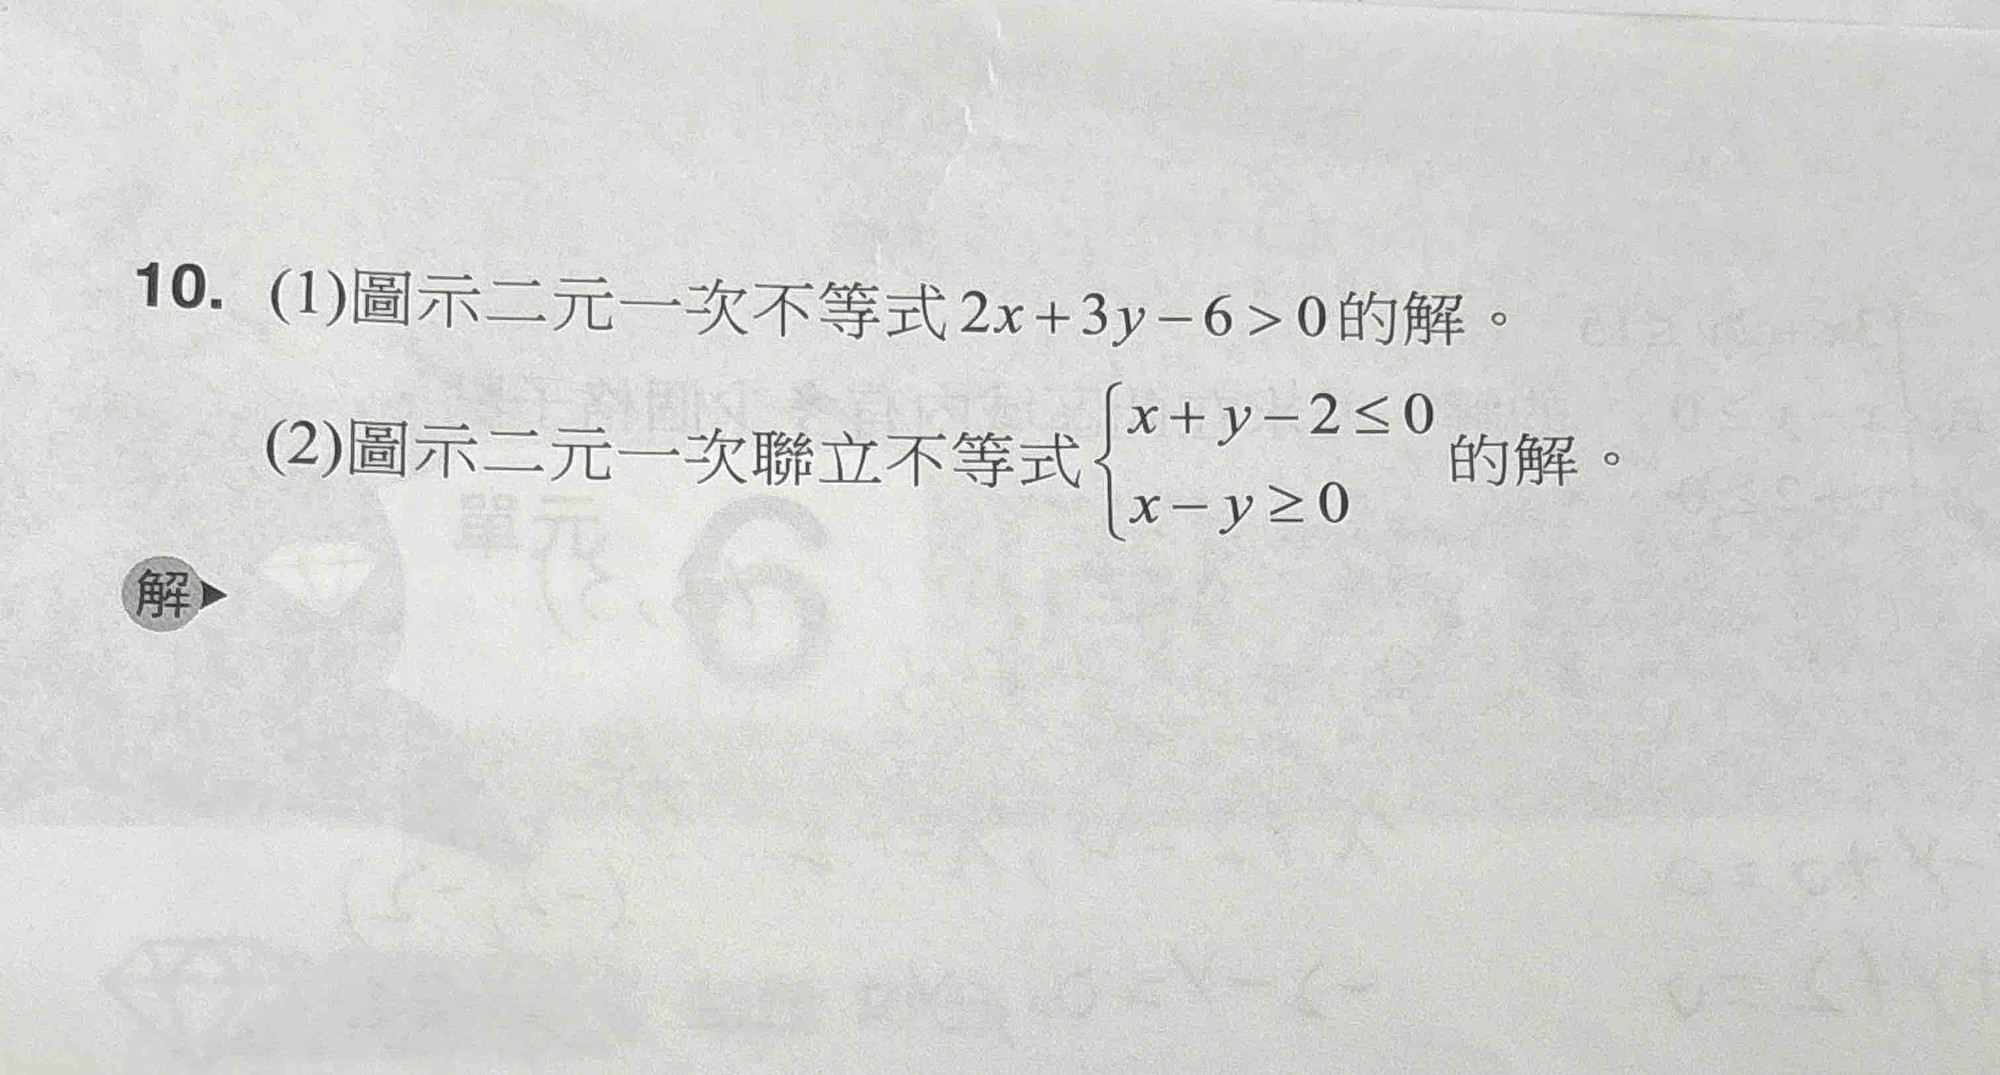 10. (1)圖示二元一次不等式2x+3y-6>0的解。
(2)圖示二元一次聯立不等式{x+y-2≤0
x-y≥0 的解。
解